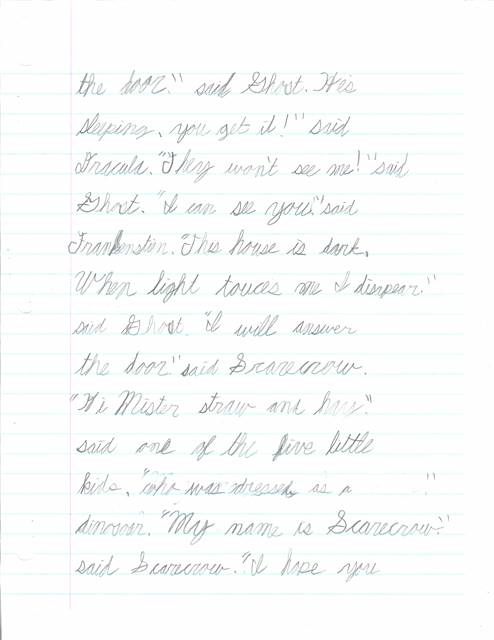 the door." said Ghost. He's
sleeping, you get it!" said
Dracula. "They won't see me!" said
Ghost. "I can see you." said
Frankenstein. "This house is dark.
When light touces me I disapear."
said Ghost. "I will answer
the door." said Scarecrow.
"Hi Mister straw and hay."
said one of the five little
kids, "who was dressed as a "
dinosoar. "My name is Scarecrow."
said Scarecrow. "I hope you